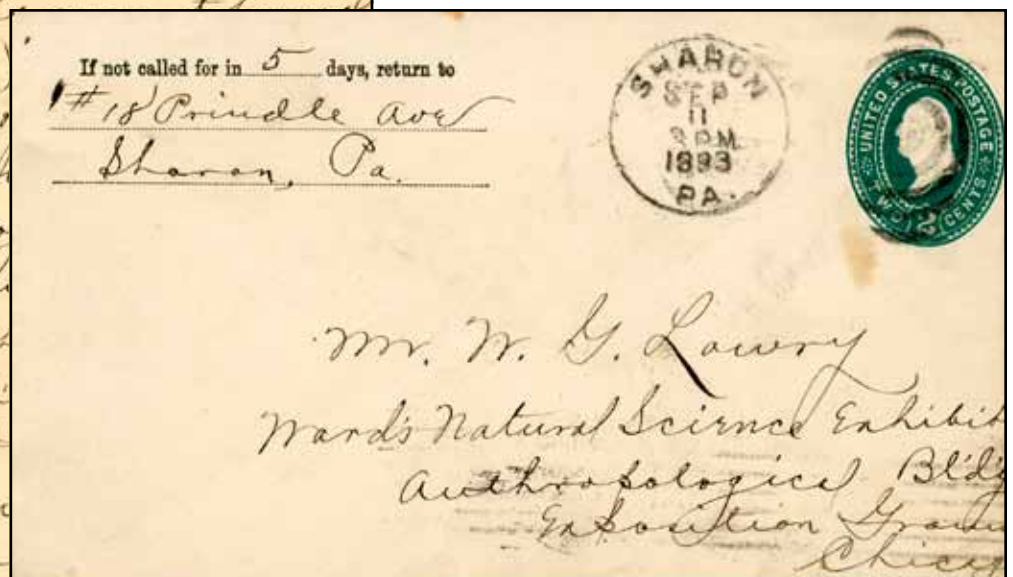 If not called for in 5 days, return to
# 18 Prindle Ave
Sharon, Pa.
SHARON
SEP
11
3 PM
1893
PA.
UNITED STATES POSTAGE
TWO 2 CENTS
Mr. W. G. Lowry
Ward's Natural Science Exhibit
Anthropological Bldg
Exposition